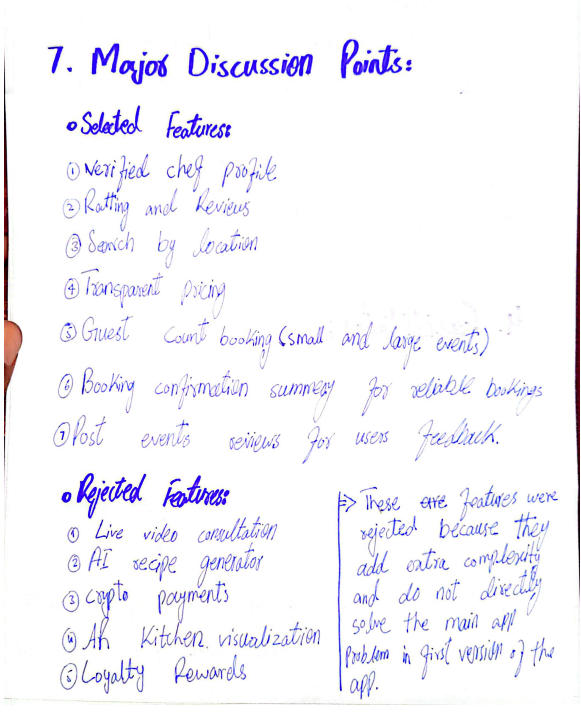 7. Major Discussion Points:
• Selected Features:
① Verified chef profile
② Ratting and Reviews
③ Search by location
④ Transparent pricing
⑤ Guest count booking (small and large events)
⑥ Booking confirmation summery for reliable bookings
⑦ Post events reviews for users feedback.
• Rejected Features:
① Live video consultation
② AI recipe generator
③ Crypto payments
④ AR Kitchen visualization
⑤ Loyalty Rewards
⇒ These are features were
rejected because they
add extra complexity
and do not directly
solve the main app
problem in first version of the
app.